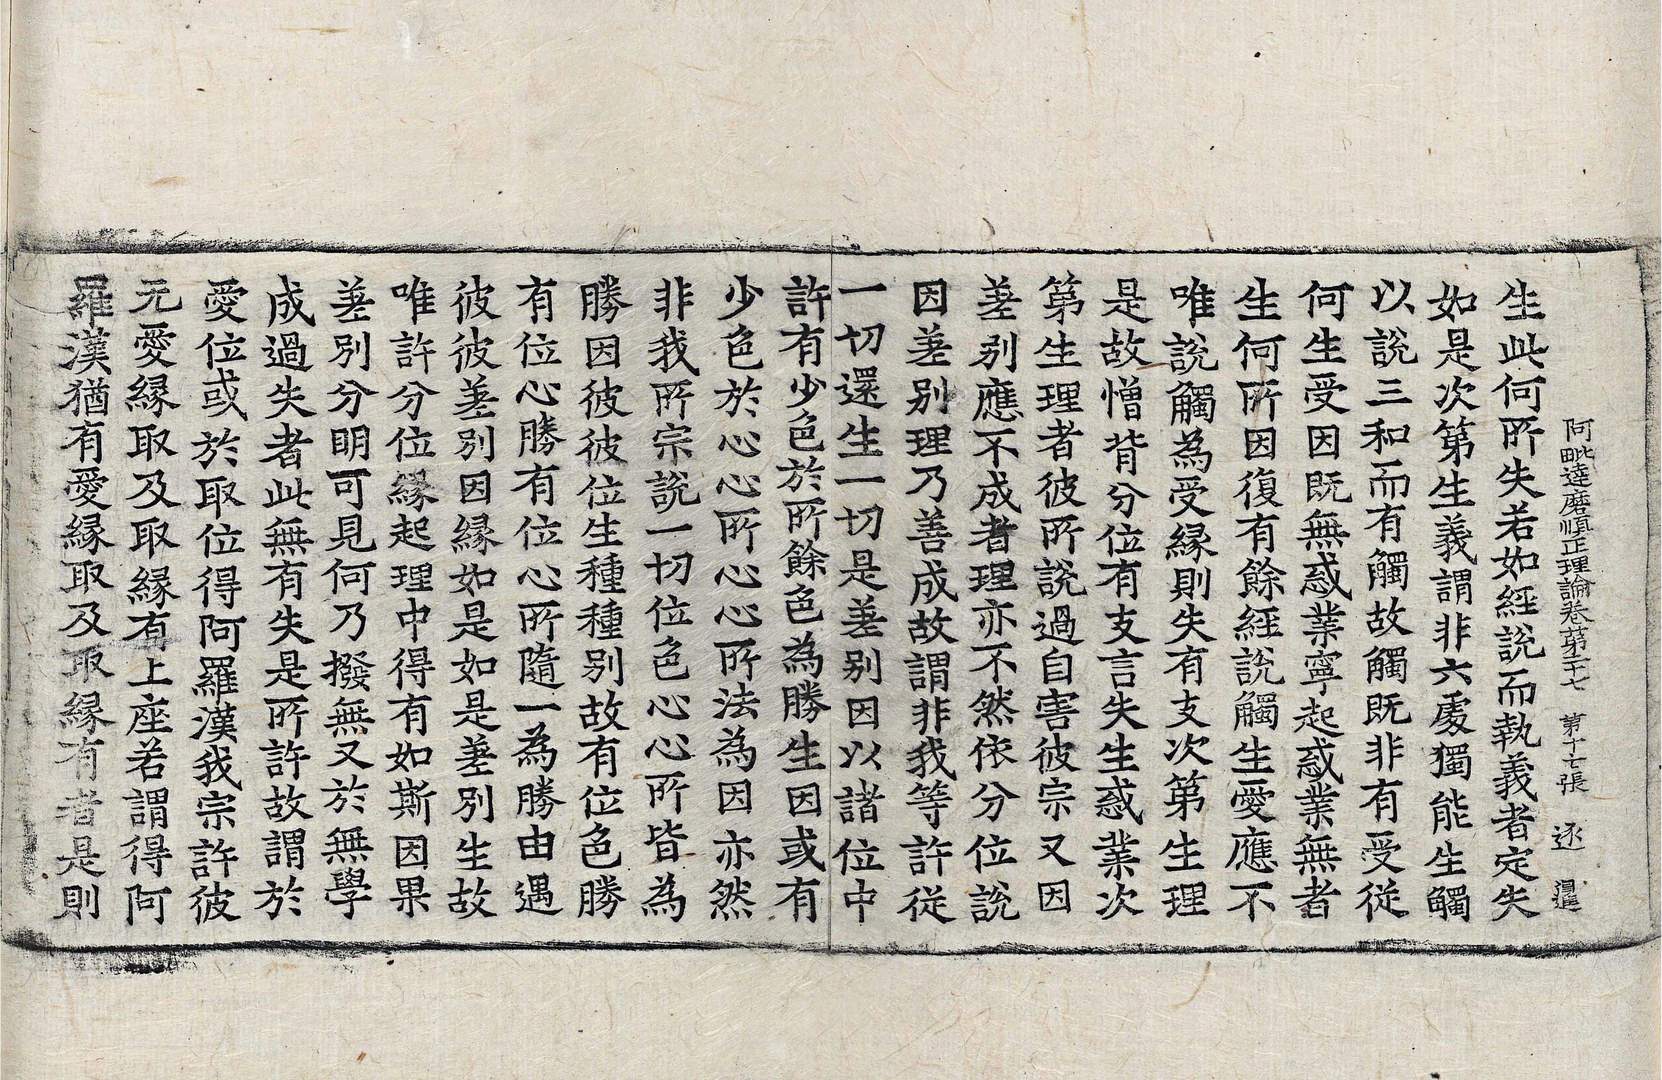 阿毗達磨順正理論卷第二十七 第十七張 逐
生此何所失若如經說而執義者定失
如是次第生義謂非六處獨能生觸
以說三和而有觸故觸旣非有受從
何生受因旣無惑業寧起惑業無者
生何所因復有餘經說觸生愛應不
唯說觸為受緣則失有支次第生理
是故憎背分位有支言失生惑業次
第生理者彼所說過自害彼宗又因
差別應不成者理亦不然依分位說
因差別理乃善成故謂非我等許從
一切還生一切是差別因以諸位中
許有少色於所餘色為勝生因或有
少色於心心所心心所法為因亦然
非我所宗說一切位色心心所皆為
勝因彼彼位生種種別故有位色勝
有位心勝有位心所隨一為勝由遇
彼彼差別因緣如是如是差別生故
唯許分位緣起理中得有如斯因果
差別分明可見何乃撥無又於無學
成過失者此無有失是所許故謂於
愛位或於取位得阿羅漢我宗許彼
无愛緣取及取緣有上座若謂得阿
羅漢猶有愛緣取及取緣有者是則